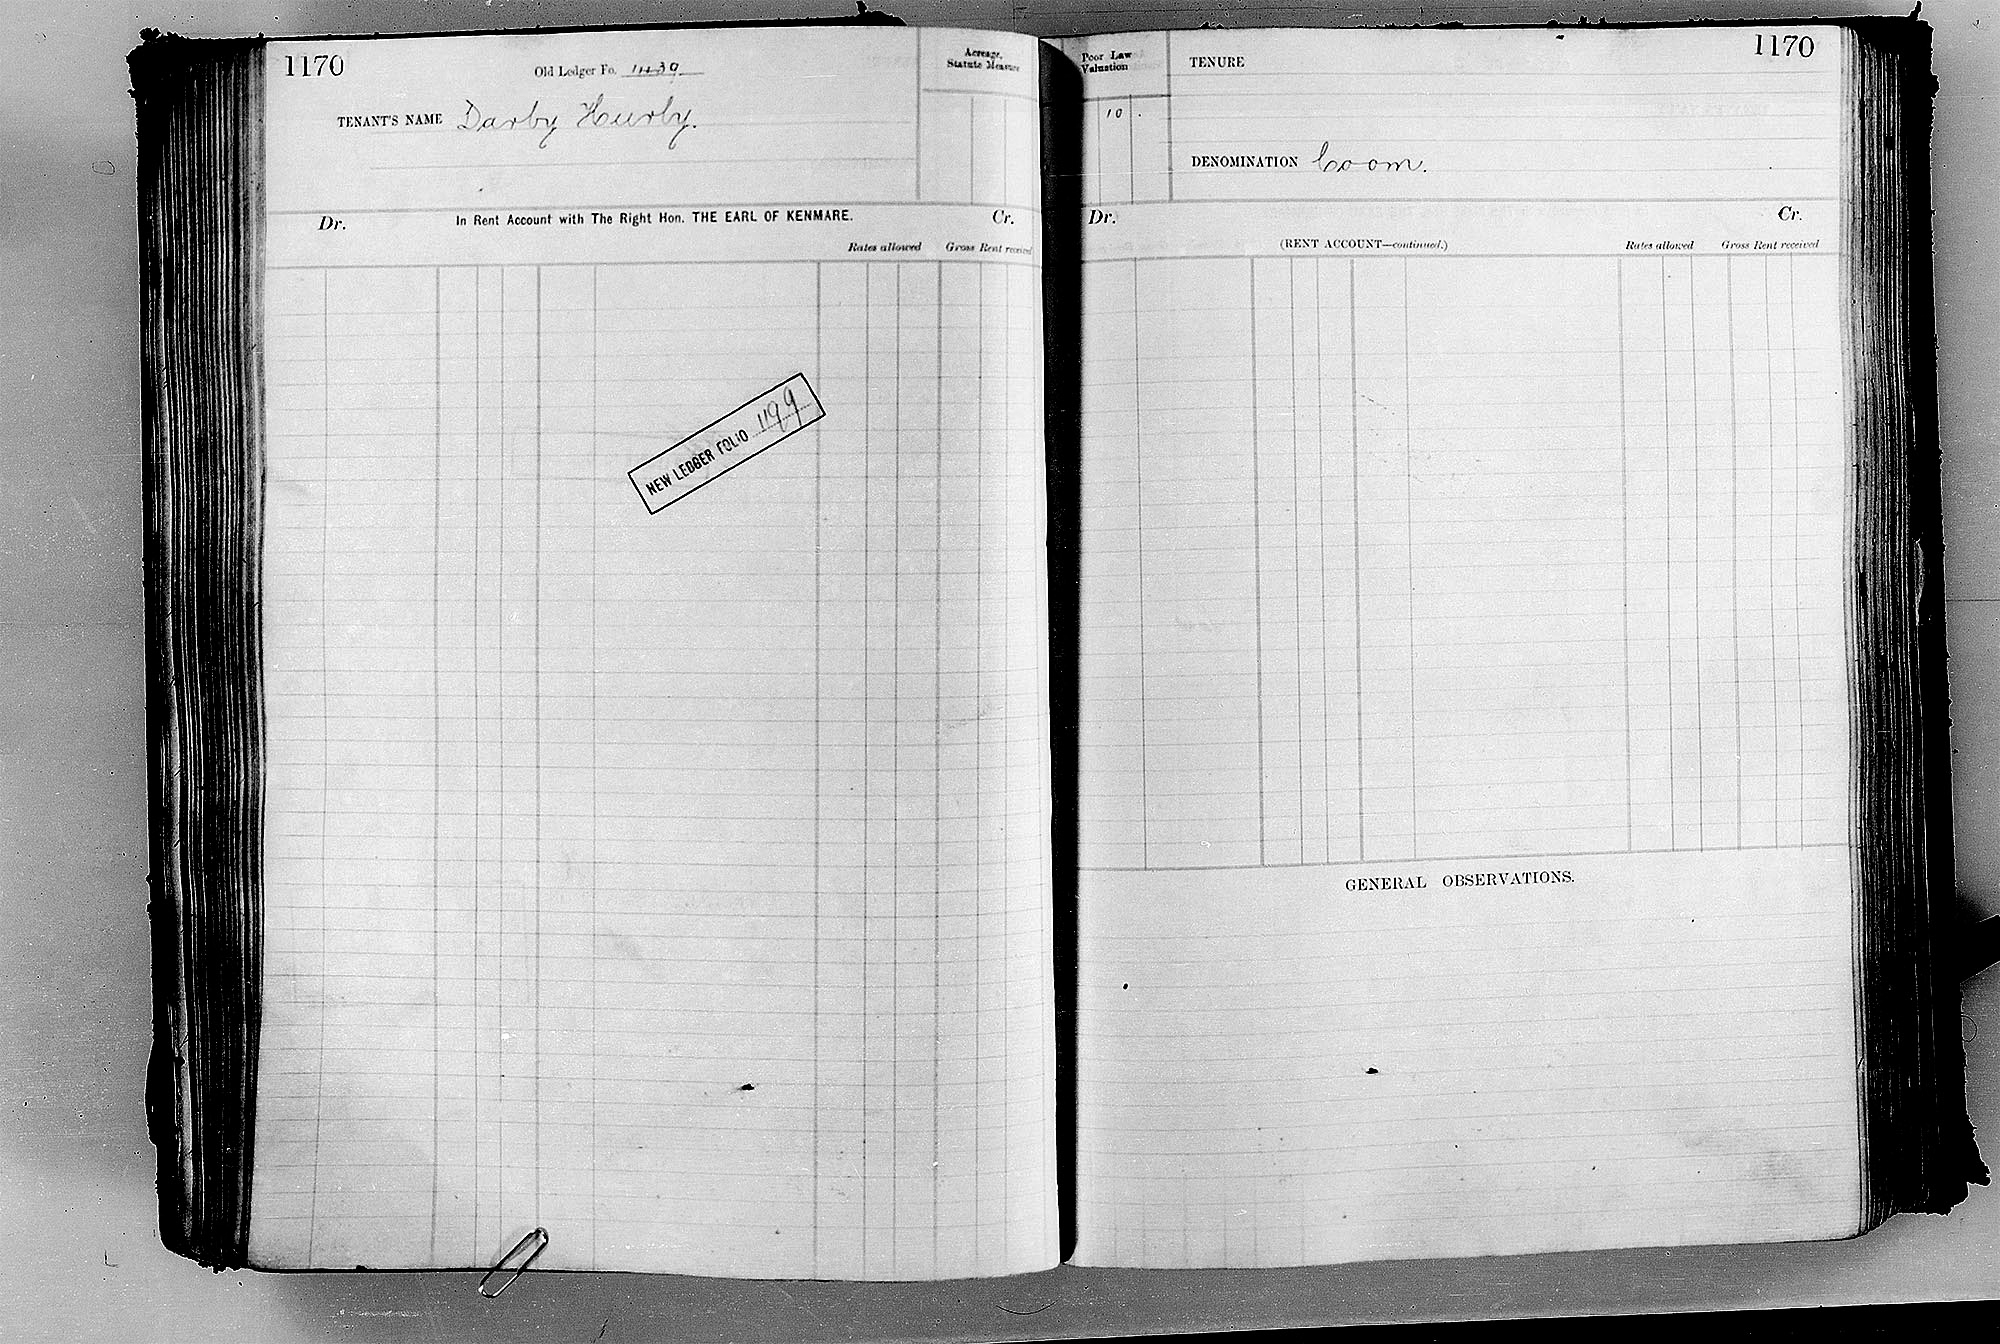 1170
Old Ledger Fo. 1139
TENANT'S NAME Darby Hurly.
Acreage,
Statute Measure
Dr. In Rent Account with The Right Hon. THE EARL OF KENMARE. Cr.
Rates allowed Gross Rent received
NEW LEDGER FOLIO 1199
1170
Poor Law
Valuation
10 .
TENURE
DENOMINATION Coom.
Dr. Cr.
(RENT ACCOUNT—continued.) Rates allowed Gross Rent received
GENERAL OBSERVATIONS.